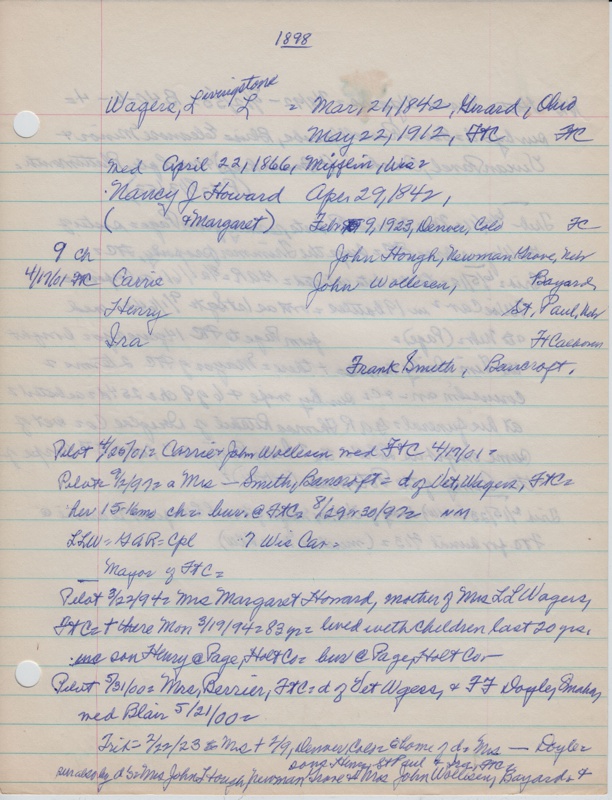 1898
Wagers, Livingstone L = Mar, 21, 1842, Girard, Ohio
May 22, 1912, FtC FtC
med April 22, 1866, Mifflin, Wis=
Nancy J Howard Apr 29, 1842,
( & Margaret) Feb 9, 1923, Denver, Colo FC
9 ch John Hough, Newman Grove, Neb
4/17/01 FtC Carrie John Wollesen, Bayard,
Henry St. Paul, Neb
Ira Ft Calhoun
Frank Smith, Bancroft,
Pilot 4/25/01= Carrie & John Wollesen med FtC 4/17/01=
Pilot= 9/2/97= a Mrs — Smith, Bancroft = d of Vet Wagers, FtC=
her 15-16mo ch= bur. @ FtC= 8/29 or 30/97= NM
LLW= GAR= Cpl 7 Wis Cav=
Mayor of FtC=
Pilot 3/22/94= Mrs Margaret Howard, mother of Mrs LL Wagers,
FtC= † there Mon 3/19/94= 83 yr= lived with children last 20 yrs.
son Henry @ Page, Holt Co= bur @ Page, Holt Co-
Pilot 5/31/00= Mrs, Berrier, FtC= d of Vet Wgess, & FF Doyle, Omaha,
med Blair 5/21/00=
Trib= 2/22/23 Mrs † 2/9, Denver, Colo= @ home of d= Mrs — Doyle=
sons Henry, St Paul & Ira, FtC,
survived by d's= Mrs John Hough, Newman Grove & Mrs John Wollesen, Bayard= &